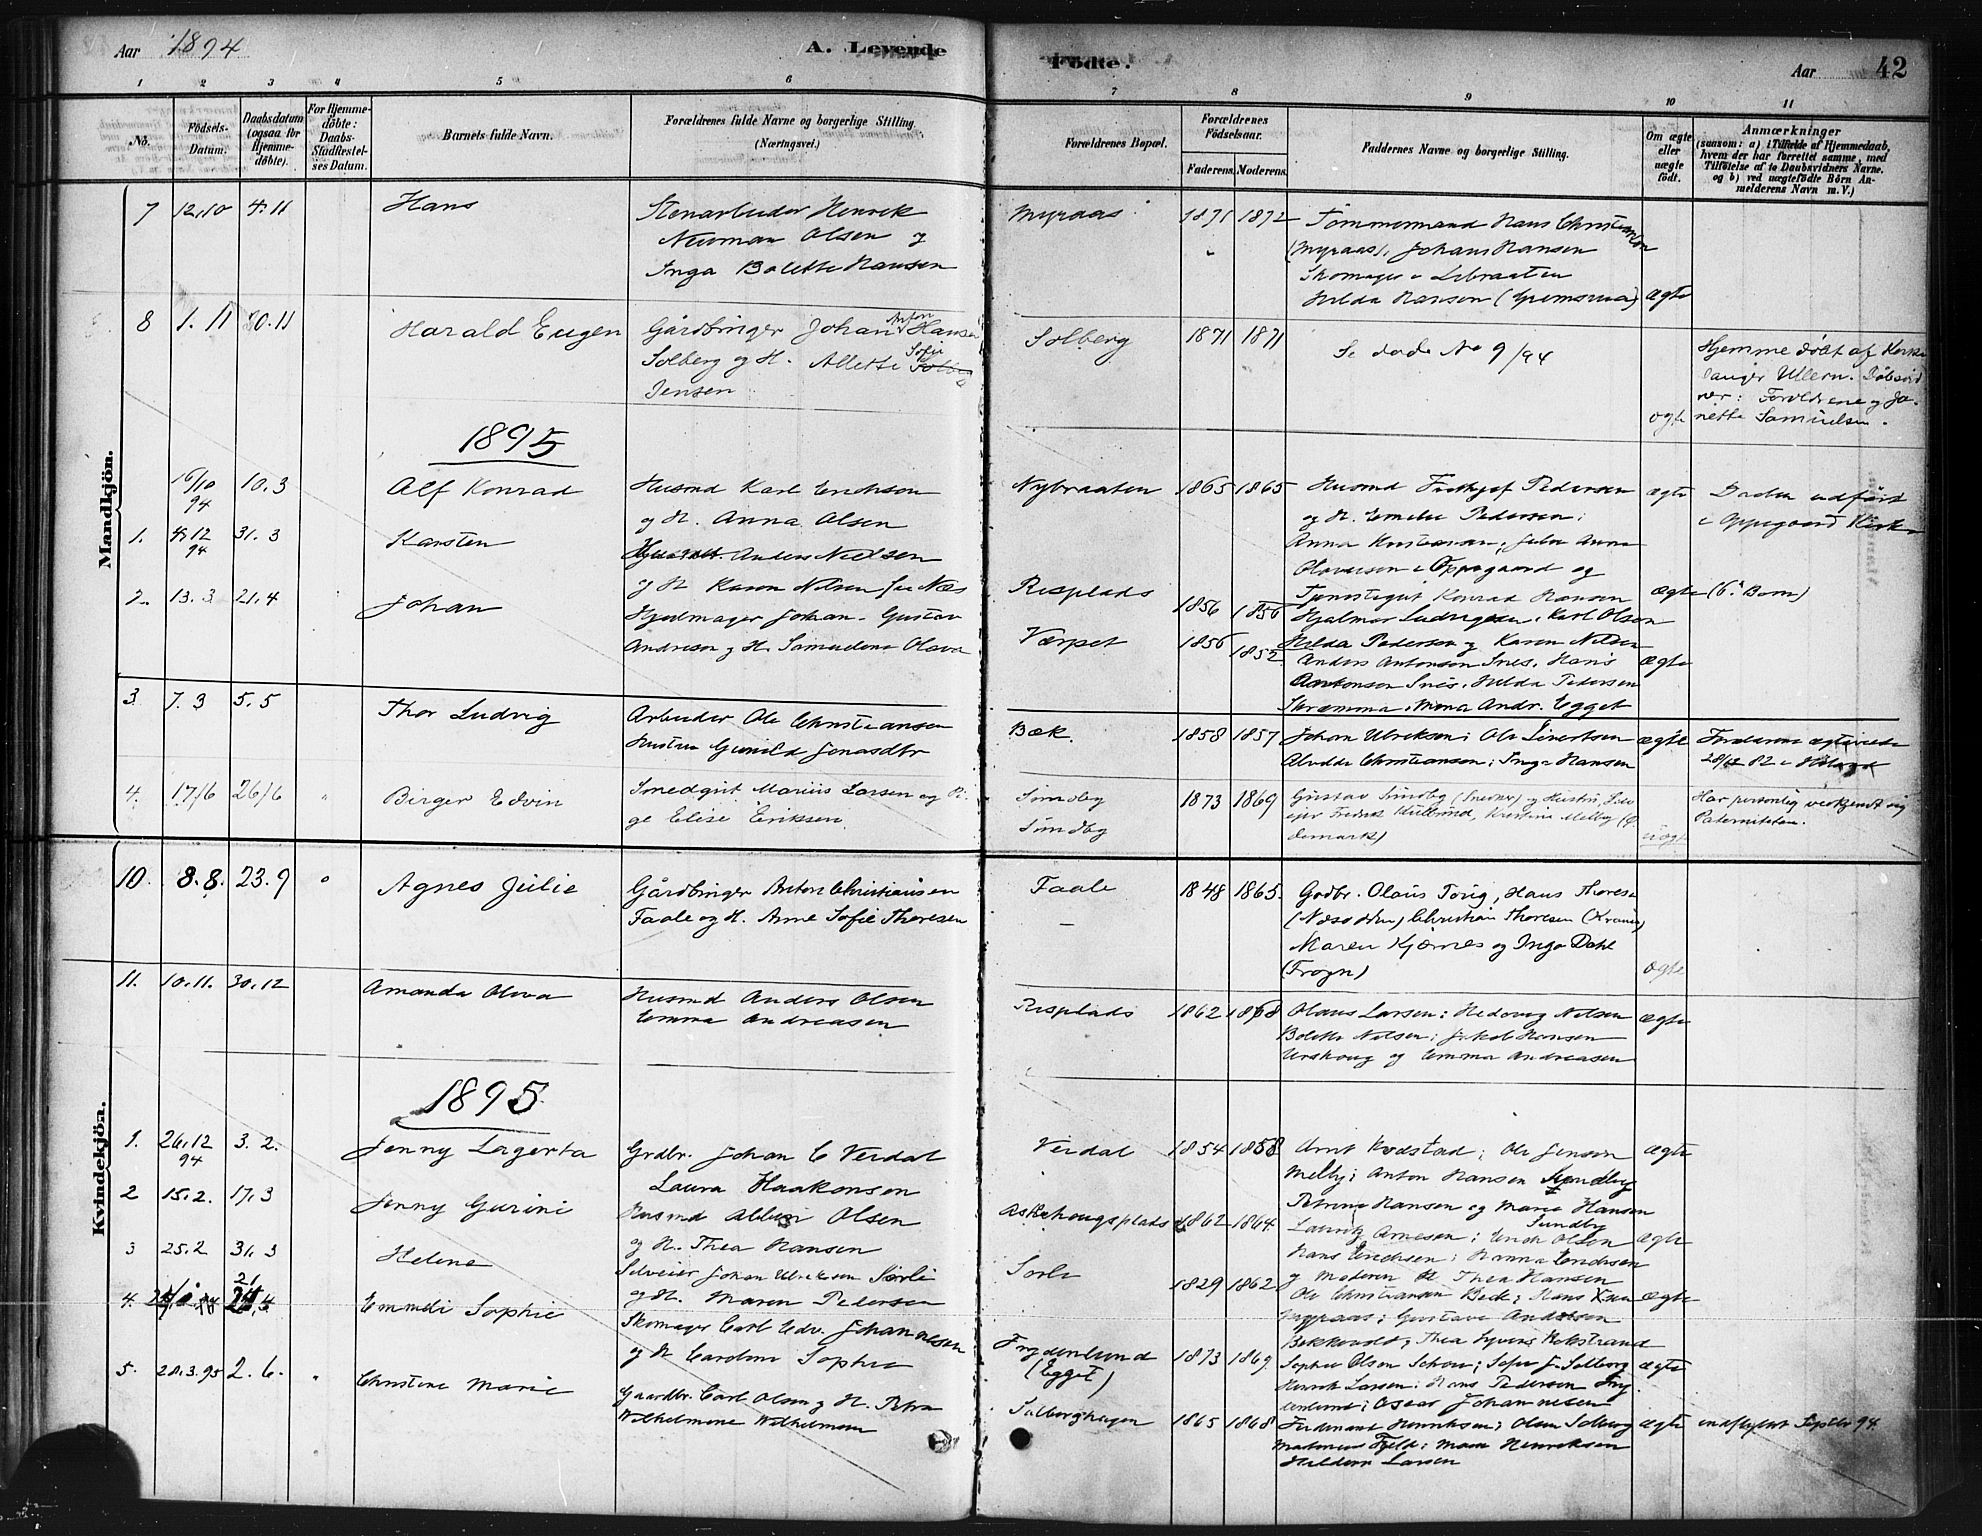 Aar 1894
A. Levende
Fødte.
Aar
42
1 2 3 4 5 6 7 8 9 10 11
No.
Fødsels-Datum.
Daabsdatum (ogsaa for Hjemme-døbte).
For Hjemme-døbte: Daabs-Stadfestel-ses Datum.
Barnets fulde Navn.
Forældrenes fulde Navne og borgerlige Stilling. (Næringsvei.)
Forældrenes Bopæl.
Forældrenes Fødselsaar.
Faderens. Moderens.
Faddernes Navne og borgerlige Stilling.
Om ægte eller uægte født.
Anmærkninger
(saasom: a) i Tilfælde af Hjemmedaab,
hvem der har forrettet samme, med
Tilføielse af to Daabsvidners Navne.
og b) ved uægtefødte Børn An-
melderens Navn m. V.)
Mandkjön.
7 12.10 4.11 Hans
Stenarbeider Henrik
Neuman Olsen og
Inga Bolette Hansen
Myraas 1871 1872
Tømmermand Hans Christiansen
(Myraas), Johans Hansen
Skomager
Hilda Hansen
ægte
8 1.11 30.11 Harald Eugen
Gårdbruger Johan Anton Hansen
Solberg og H. Allette Sofie
Jensen
Solberg 1871 1871
Se døde No 9/94
ægte
Hjemmedøbt af Kirke
sanger Ullern. Døbsvid
ner: Forældrene og Ja-
nette Samuelsen.
1895
16/10 94 10.3 Alf Konrad
Husmd Karl Erichsen
og H. Anna Olsen
Nybraaten 1865 1865
Husmd Frithjof Pedersen
og H. Emelie Pedersen;
ægte
Daaben udført
i Oppegaard Kirke
1. 4.12 94 31.3 Karsten
Anders Nielsen
og H. Karen Nilsen f. Næs
Risplads 1856 1856
Oppegaard og
Konrad Hansen
ægte (6te Barn)
2. 13.3 21.4 Johan
Hjulmager Johan Gustav
Andresen og H. Samueline Olava
Værpet 1856 1852
Hjalmar Ludvigsen, Karl Olsen
Hilda Pedersen og Karen Nilsen
Anders Antonsen Snes, Hans
Antonsen Snes, Hilda Pedersen
Skræmma, Mina Andr. Egget
ægte
3 7.3 5.5 Thor Ludvig
Arbeider Ole Christiansen
Hustru Gunild Jonasdtr
Bæk. 1858 1857
Johan Ulriksen; Ole Sivertsen
Alvilde Christiansen; Inga Hansen
ægte
Forældrene ægteviede
28/12 82 i Høland
4. 17/6 26/6 " Birger Edvin
Smedgut Marius Larsen og Pi-
ge Elise Eriksen
Sundby
Sundby
1873 1869
Gustav Sundby (Smeder) og Hustru,
Kristine Melby
uægte
Har personlig vedkjendt sig
Paterniteten.
Kvindekjön.
10. 8.8. 23.9 " Agnes Julie
Gårdbruger Anton Christiansen
Faale og H. Anne Sofie Thoresen
Faale
—
1848 1865.
Grdbr. Olaus Toug, Hans Thoresen
(Næsodden) Christian Thoresen
Maren Kjærnes og Inga Dahl
(Frogn)
ægte
11. 10.11. 30.12 Amanda Olava
Husmd Anders Olsen
Emma Andreasen
Risplads 1862 1868
Olaus Larsen; Hedevig Nilsen
Bolette Nilsen; Jakob Hansen
Urskoug og Emma Andreasen
ægte
1895
1. 26.12 94 3.2. Jenny Lagerta
Grdbr. Johan C Verdal
Laura Haakonsen
Verdal 1854 1858
Arnt Kodstad; Ole Jensen
Melby; Anton Hansen Sundby
Petrine Hansen og Marie Hansen
Sundby
ægte
2 15.2. 17.3 Jenny Gurine
Husmd Albin Olsen
og H. Thea Hansen
Askehougsplads 1862 1864.
Laurits Arnesen; Erich Olsen
Hans Erichsen; Hanna Erichsen
og Moderen Thea Hansen
ægte
3 25.2 31.3 Helene
Selveier Johan Ulriksen Sørli
og H. Maren Pedersen
Sørli 1829 1862
Ole Christiansen Bæk; Hans
Myraas; Gustava Andersen
ægte
4. 21.4 Emmeli Sophie
Skomager Carl Edv. Johannesen
og H Caroline Sophie
Frydenlund
(Egget)
1873 1869
Sophie Olsen Schou; Sofie J. Solberg
Henrik Larsen; Hans Pedersen Fry
denlund; Oscar Johannesen
ægte
5. 20.3.95 2.6. " Christine Marie
Gaardbr. Carl Olsen og H. Petra
Wilhelmine Wilhelmsen
Solberghagen 1865 1868
Ferdinand Henriksen; Olsen Solberg
Mathias Fjeld; Maren Henriksen
Larsen
ægte
indflyttet Septbr 94.